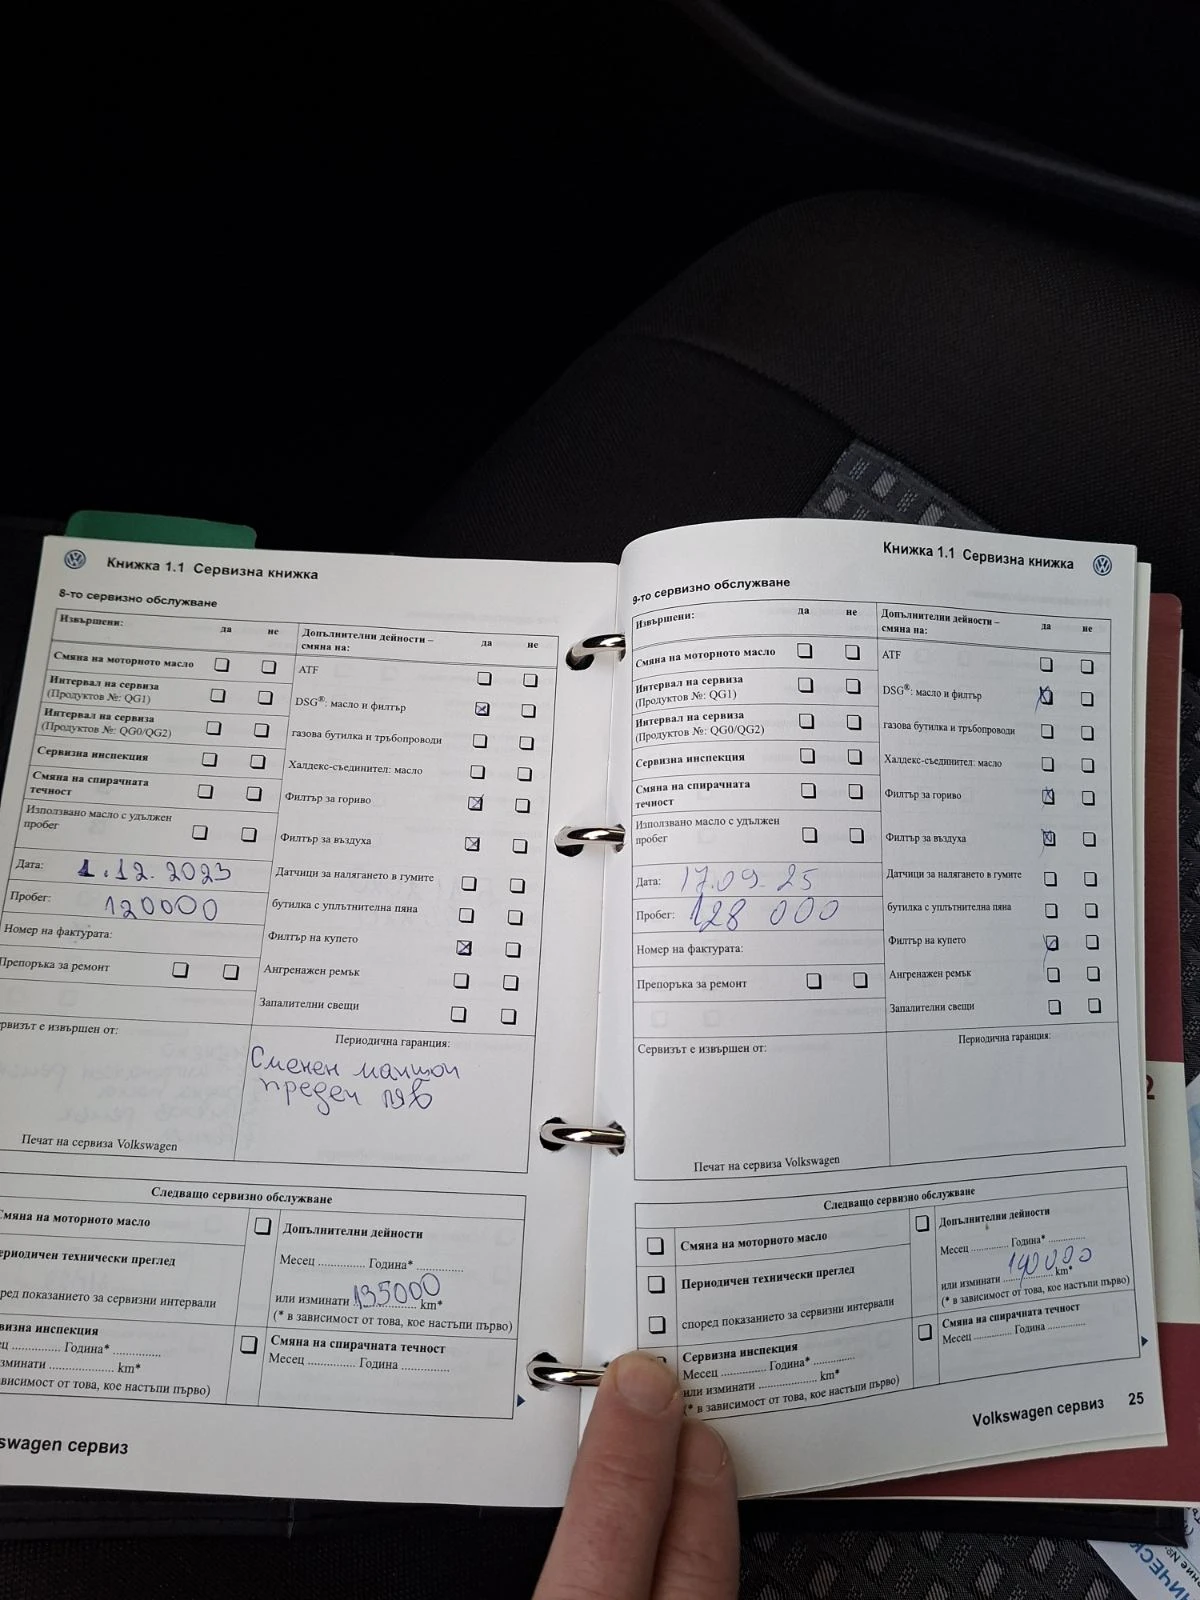 Книжка 1.1 Сервизна книжка
8-то сервизно обслужване
Извършени:
да не
Смяна на моторното масло
Интервал на сервиза
(Продуктов №: QG1)
Интервал на сервиза
(Продуктов №: QG0/QG2)
Сервизна инспекция
Смяна на спирачната
течност
Използвано масло с удължен
пробег
Дата: 1.12.2023
Пробег: 120000
Номер на фактурата:
Препоръка за ремонт
ервизът е извършен от:
Печат на сервиза Volkswagen
Допълнителни дейности –
смяна на:
да не
ATF
DSG®: масло и филтър
газова бутилка и тръбопроводи
Халдекс-съединител: масло
Филтър за гориво
Филтър за въздуха
Датчици за налягането в гумите
бутилка с уплътнителна пяна
Филтър на купето
Ангренажен ремък
Запалителни свещи
Периодична гаранция:
Сменен маншон
преден ляв
Следващо сервизно обслужване
Смяна на моторното масло
ериодичен технически преглед
оред показанието за сервизни интервали
визна инспекция
ец ............ Година* ..............
зминати .................... km*
ависимост от това, кое настъпи първо)
Допълнителни дейности
Месец ............ Година* ..............
или изминати 135000 km*
(* в зависимост от това, кое настъпи първо)
Смяна на спирачната течност
Месец ............ Година ..............
swagen сервиз
Книжка 1.1 Сервизна книжка
9-то сервизно обслужване
Извършени:
да не
Смяна на моторното масло
Интервал на сервиза
(Продуктов №: QG1)
Интервал на сервиза
(Продуктов №: QG0/QG2)
Сервизна инспекция
Смяна на спирачната
течност
Използвано масло с удължен
пробег
Дата: 17.09.25
Пробег: 128 000
Номер на фактурата:
Препоръка за ремонт
Сервизът е извършен от:
Печат на сервиза Volkswagen
Допълнителни дейности –
смяна на:
да не
ATF
DSG®: масло и филтър
газова бутилка и тръбопроводи
Халдекс-съединител: масло
Филтър за гориво
Филтър за въздуха
Датчици за налягането в гумите
бутилка с уплътнителна пяна
Филтър на купето
Ангренажен ремък
Запалителни свещи
Периодична гаранция:
Следващо сервизно обслужване
Смяна на моторното масло
Периодичен технически преглед
според показанието за сервизни интервали
Сервизна инспекция
Месец ............ Година* ..............
или изминати .................... km*
(* в зависимост от това, кое настъпи първо)
Допълнителни дейности
Месец ............ Година* ..............
или изминати 140000 km*
(* в зависимост от това, кое настъпи първо)
Смяна на спирачната течност
Месец ............ Година ..............
Volkswagen сервиз 25
2